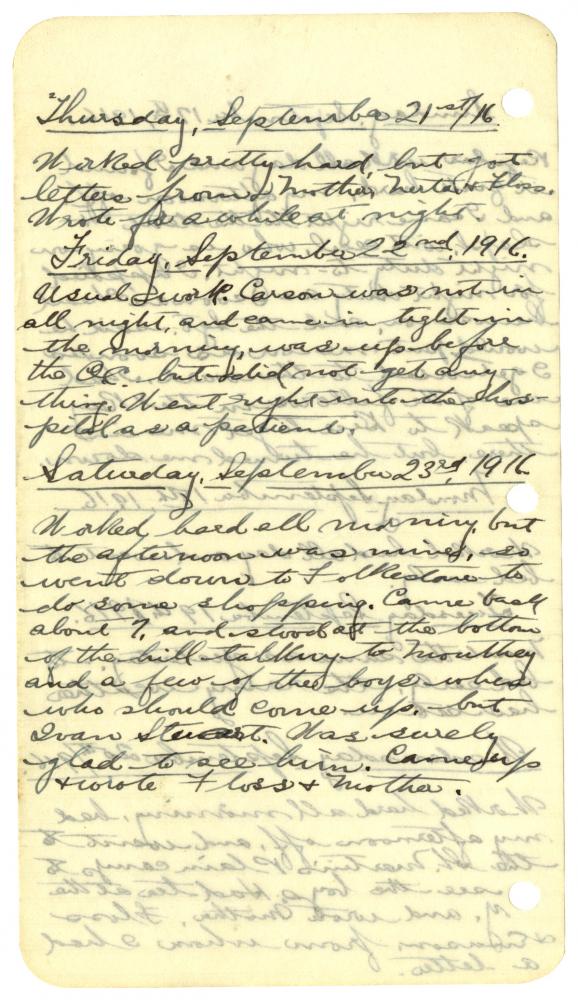 Thursday, September 21st/16
Worked pretty hard, but got
letters from Mother, Nerta & Floss.
Wrote for a while at night.
Friday, September 22nd, 1916.
Usual work. Carson was not in
all night, and came in, tight in
the morning, was up before
the O.C. but did not get any-
thing. Went right into the hos-
pital as a patient.
Saturday, September 23rd, 1916
Worked hard all morning, but
the afternoon was mine, so
went down to Folkestone to
do some shopping. Came back
about 7, and stood at the bottom
of the hill talking to
and a few of the boys when
who should come up, but
Ivan Stuart. Was surely
glad to see him. Came up
& wrote Floss & Mother.